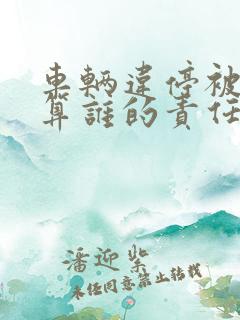 車輛違停被
算誰的責任
潘迎紫
未经同意禁止转载